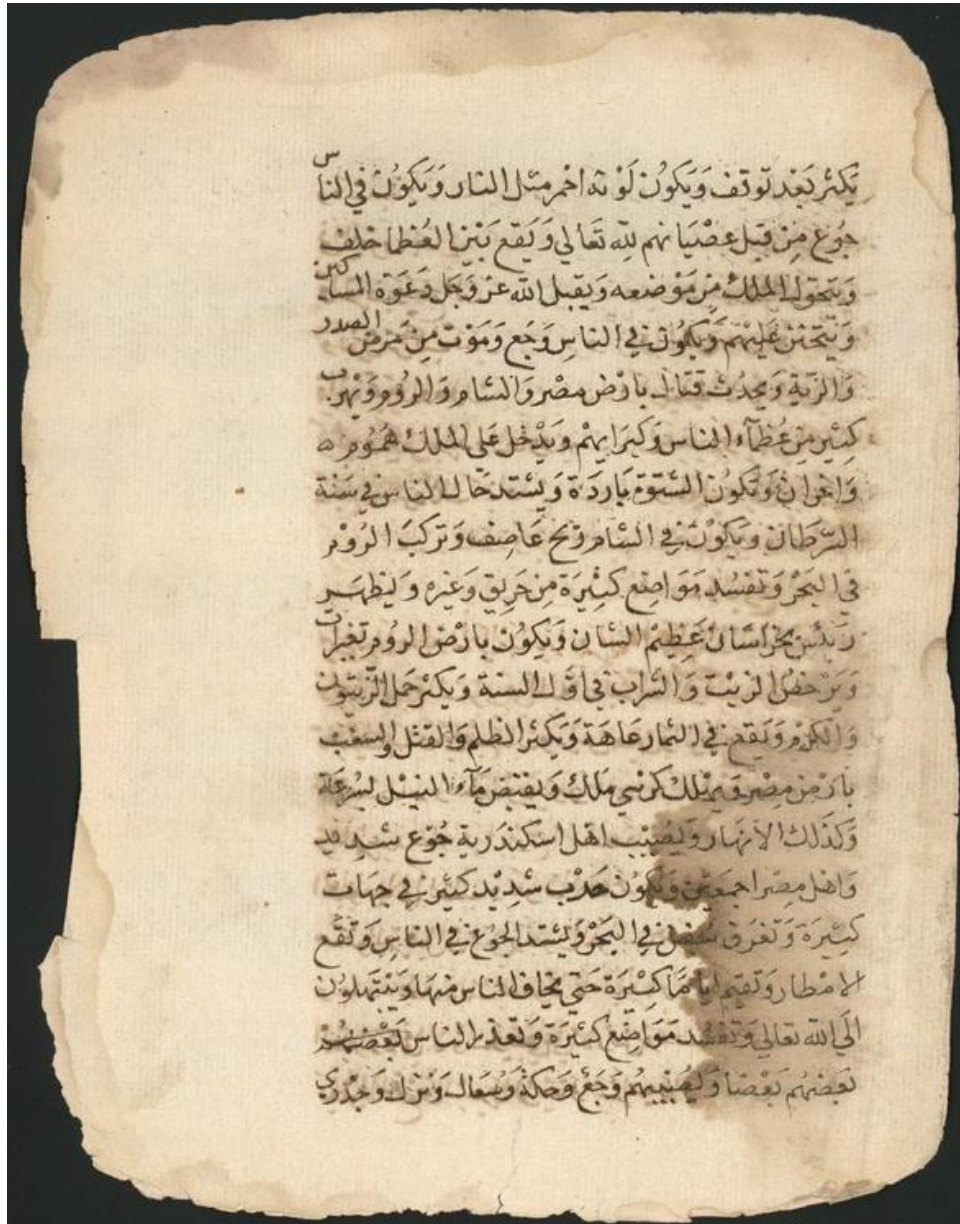 يَكثر بَعْد تَوقف وَيَكوُن لَوْنه احمر مثل النار وَيَكوُن في الناس
جُوع مِن قبل عصْيَانهم لله تَعَالي وَيَقع بَيْن العُظما خلف
وَيتحَول الملك مِن مَوْضعه وَيقبل الله عز وَجَل دَعْوَة المساكين
وَيَتَحَنن عَليْهم وَيَكوُن في الناس وَجَع وَمَوْت مِن مَرض الصدر
وَالرية وَيحدُث قتال بارْض مصْر وَالشام وَالروُم وَيهرُب
كَثير مِن عُظمآء الناس وَكبَرايهمْ وَيَدْخُل عَلى الملك همُوم
وَاحْزان وَتَكوُن الشتوَة بَاردَة وَيشتد حَال الناس في سَنة
السّرَطان وَيَكوُن في الشام رِيح عَاصِف وَتركَبَ الروُم
في البَحْر وَتفسُد مَوَاضِع كَثِيرَة مِن حَرِيق وَغيره وَليظهَر
رَيئس بخرَاسَان عَظِيْم الشان وَيَكوُن بارْض الروُم تغيرات
وَيَرْخصُ الزيْت وَالشرَاب في اوَّل السنة وَيَكثر حَمل الزّيتون
وَالكرْم وَيَقع في الثمار عَاهَة وَيَكثر الظلم وَالقتْل والسغب
بارْض مِصْر وَيمْلك كرْسي مَلك وَينقبض مَآء النيْل لسُرعَة
وَكَذلك الانهَار وَليصيْب اهْل اسكندَرية جُوْع شدِيد
وَاهْل مِصْر اجمعَيْن وَيكوُن حَرْب شدِيْد كثير في جهَات
كَثِيرَة وَتغرَق سُفن في البَحْر وَيشتد الجوُع في الناس وَتقع
الامْطار وَتقيم ايامًا كَثِيرَة حَتى يخاف الناس منهَا وَيَبْتهلوُن
الَي الله تعَالي وَتفسُد مَوَاضِع كَثيرَة وَتعْذر الناس بَعْضهُمْ
بَعضهُم بَعْضا وَليصُيْبهُم وَجَع وَحكة وَسُعَال وَنزل وَجدْري